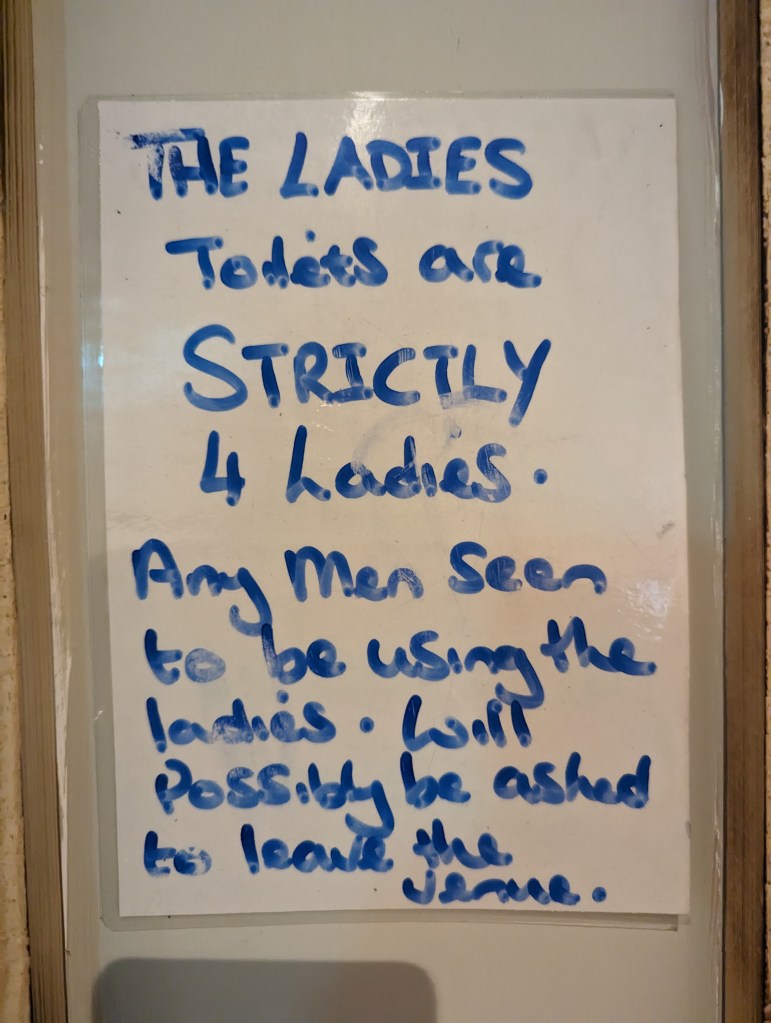 THE LADIES
Toilets are
STRICTLY
4 Ladies.
Any Men seen
to be using the
ladies. Will
possibly be asked
to leave the
venue.